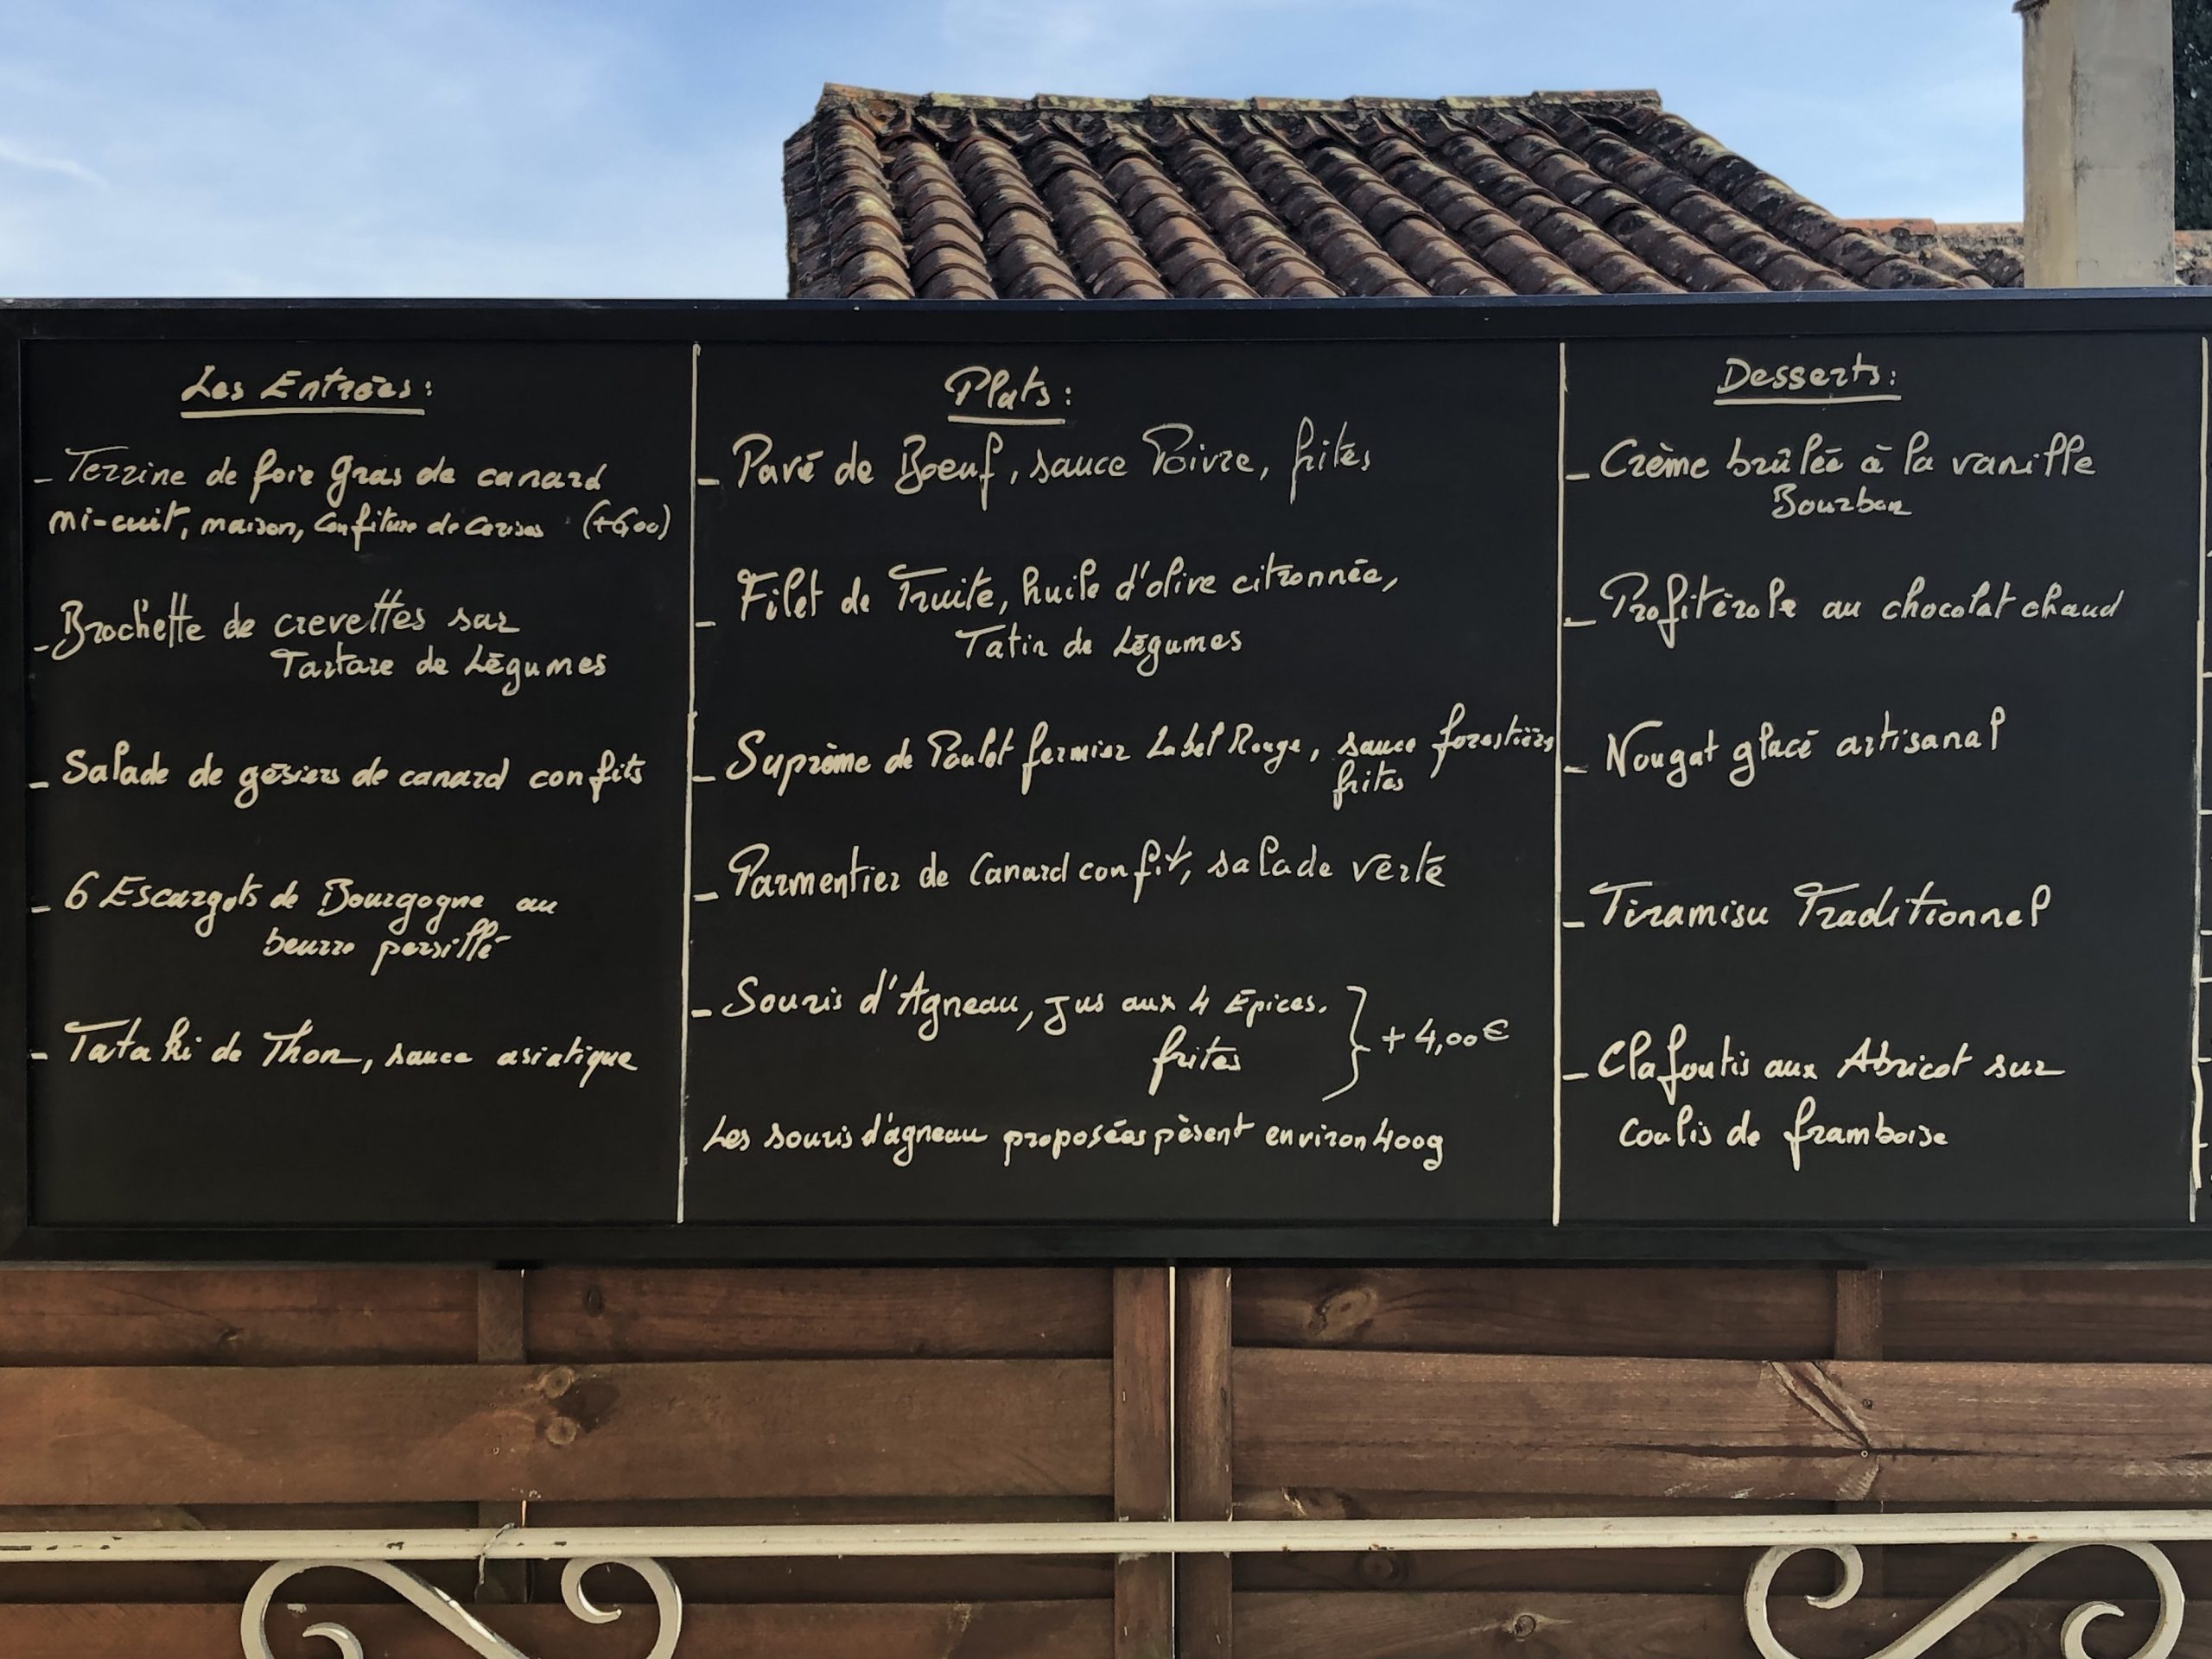 Les Entrées :
- Terrine de foie gras de canard
mi-cuit, maison, Confiture de Cerises (+6,00)
- Brochette de crevettes sur
Tartare de Légumes
- Salade de gésiers de canard confits
- 6 Escargots de Bourgogne au
beurre persillé
- Tataki de Thon, sauce asiatique
Plats :
- Pavé de Boeuf, sauce Poivre, frites
- Filet de Truite, huile d'olive citronnée,
Tatin de Légumes
- Suprème de Poulet fermier Label Rouge, sauce forestière,
frites
- Parmentier de Canard confit, salade verte
- Souris d'Agneau, jus aux 4 Epices.
frites
+ 4,00€
Les souris d'agneau proposées pèsent environ 400g
Desserts :
- Crème brûlée à la vanille
Bourbon
- Profitérole au chocolat chaud
- Nougat glacé artisanal
- Tiramisu Traditionnel
- Clafoutis aux Abricot sur
coulis de framboise